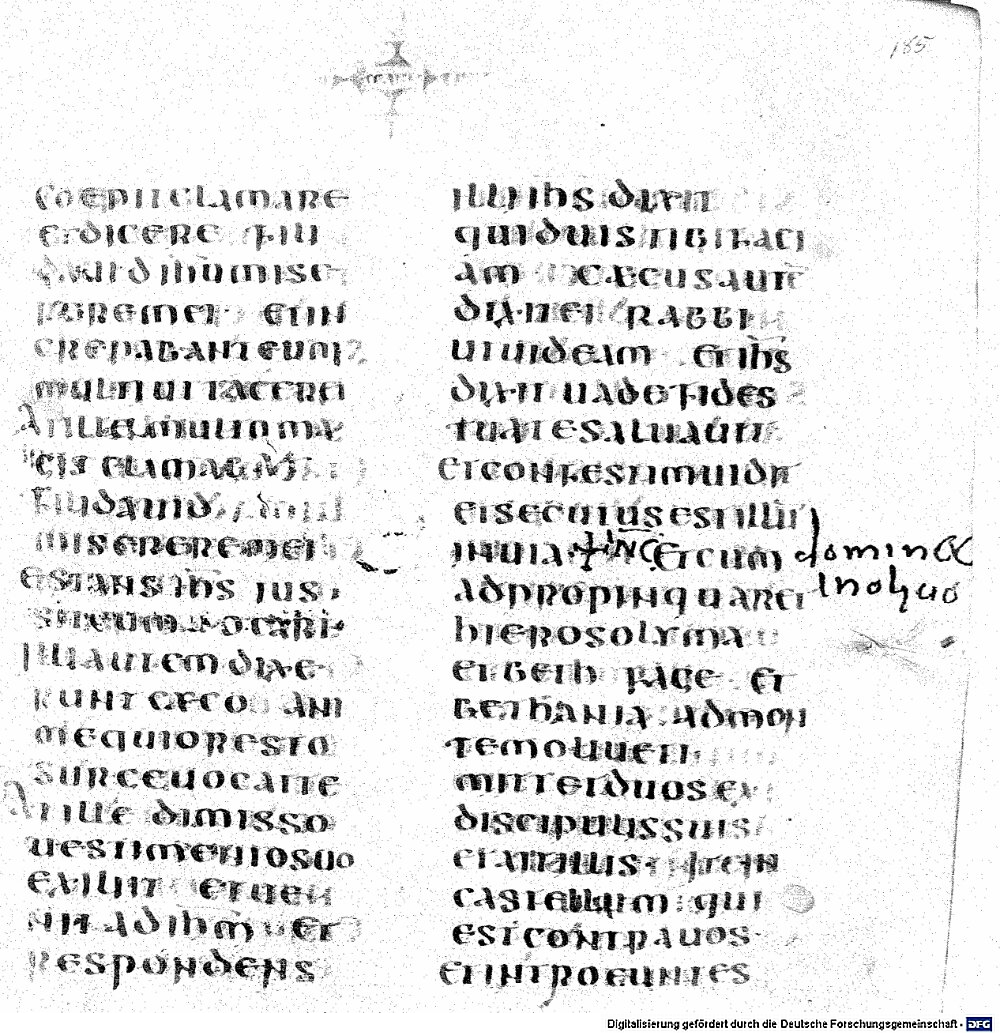 185
coepit clamare
et dicere fili
david ihu mise
rere mei et in
crepabant eum
multi ut taceret
at ille multo ma
gis clamabat
fili david
miserere mei
et stans ihs ius
sit eum vocari
illi autem dixe
runt ceco ani
mequior esto
surge vocat te
at ille dimisso
vestimento suo
exiliit et ve
nit ad ihm et
respondens
illi ihs dixit
quid uis tibi faci
am caecus aute
dixit ei rabbi
ut uideam et ihs
dixit uade fides
tua te saluauit
et confestim uidit
et secutus est illu
in uia INC et cum
adpropinquaret
hierosolyma
et beth page et
bethania ad mon
tem oliueti
mittet duos ex
discipulis suis
et ait illis ite in
castellum qui
est contra uos
et introeuntes
dominica
in oliuo
Digitalisierung gefördert durch die Deutsche Forschungsgemeinschaft - DFG